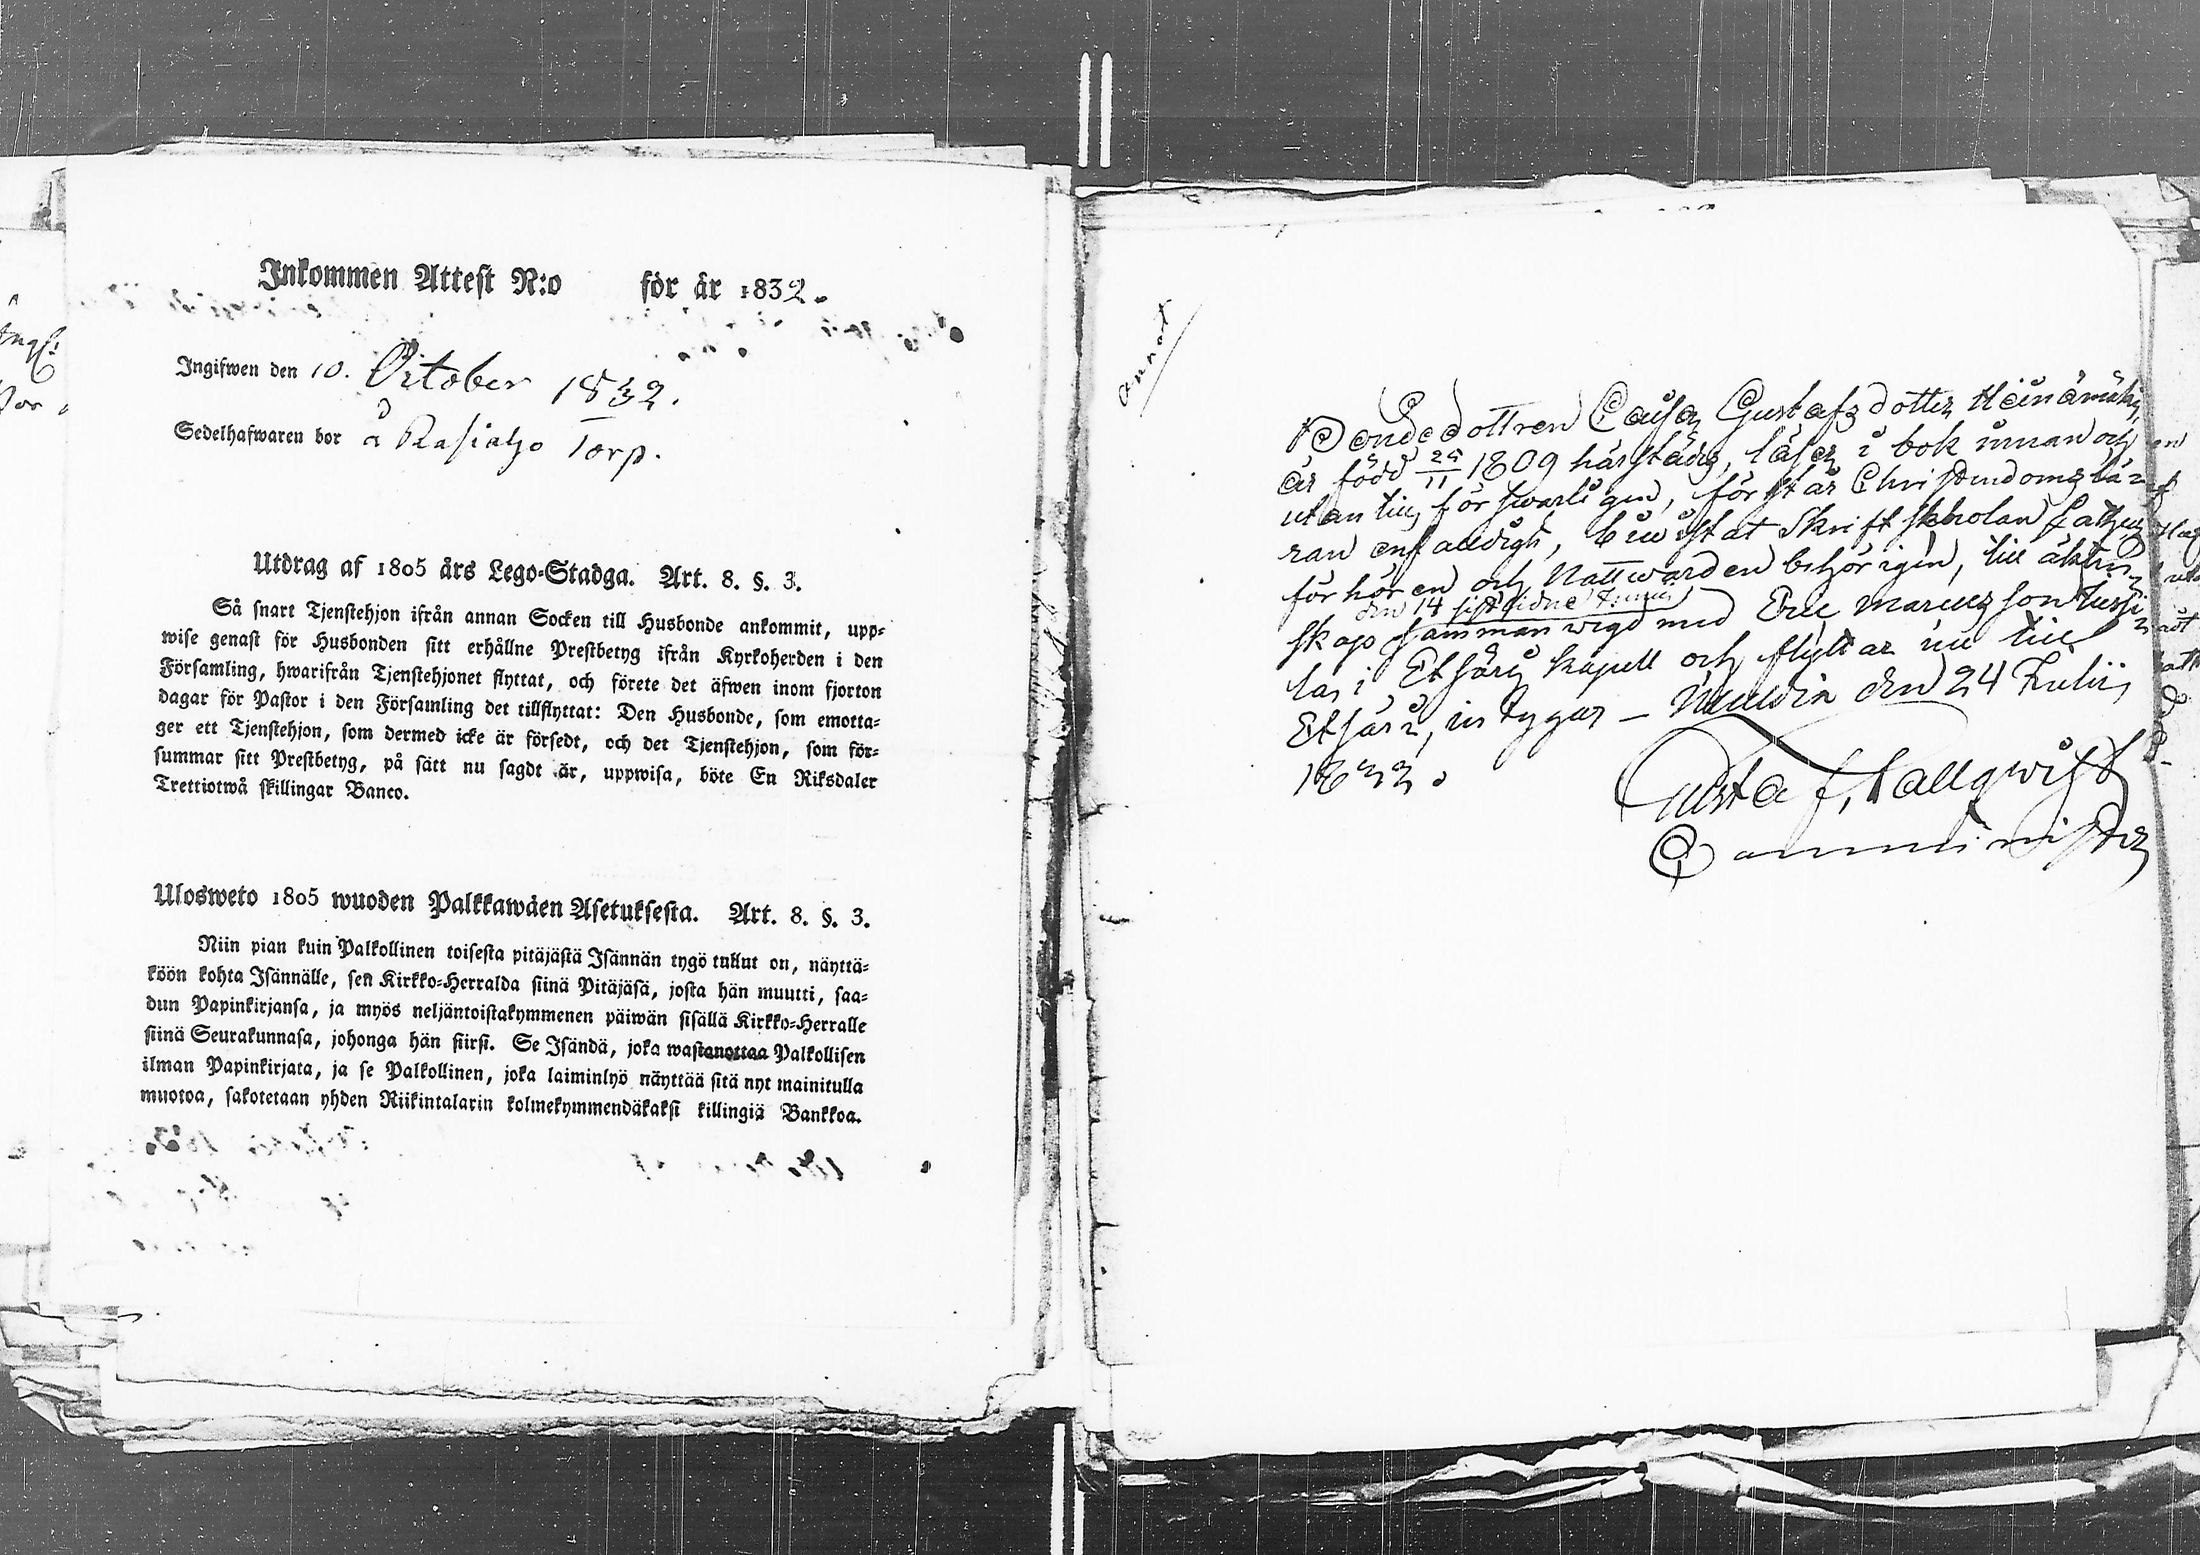 Inkommen Attest N:o för år 1832.
Ingifwen den 10. October 1832.
Sedelhafwaren bor å Rasialho Torp.
Utdrag af 1805 års Lego-Stadga. Art. 8. §. 3.
Så snart Tjenstehjon ifrån annan Socken till Husbonde ankommit, upp-
wise genast för Husbonden sitt erhållne Prestbetyg ifrån Kyrkoherden i den
Församling, hwarifrån Tjenstehjonet flyttat, och förete det äfwen inom fjorton
dagar för Pastor i den Församling det tillflyttat: Den Husbonde, som emotta-
ger ett Tjenstehjon, som dermed icke är försedt, och det Tjenstehjon, som för-
summar sitt Prestbetyg, på sätt nu sagdt är, uppwisa, böte En Riksdaler
Trettiotwå skillingar Banco.
Ulosweto 1805 wuoden Palkkawäen Asetuksesta. Art. 8. §. 3.
Niin pian kuin Palkollinen toisesta pitäjästä Isännän tygö tullut on, näyttä-
köön kohta Isännälle, sen Kirkko-Herralda siinä Pitäjäsä, josta hän muutti, saa-
dun Papinkirjansa, ja myös neljäntoistakymmenen päiwän sisällä Kirkko-Herralle
siinä Seurakunnasa, johonga hän siirsi. Se Isändä, joka wastanottaa Palkollisen
ilman Papinkirjata, ja se Palkollinen, joka laiminlyö näyttää sitä nyt mainitulla
muotoa, sakotetaan yhden Riikintalarin kolmekymmendäkaksi killingiä Bankkoa.
Bondedottren Caisa Gustafsdotter Heinämäki,
är född 25/11 1809 härstädes, läser i bok innan och
utantill försvarligen, förstår Christendomslä-
ran enfaldigt, bewistat Skriftskholan
förhören och Nattwarden behörigen, till äkten-
den 14 sistlidne
skap sammanwigd med Eric Marcusson
la i Etseri kapell och flyttar nu till
Etseri, intygar – den 24 Julii
1832.
Gustaf Tallqwist
Comminister